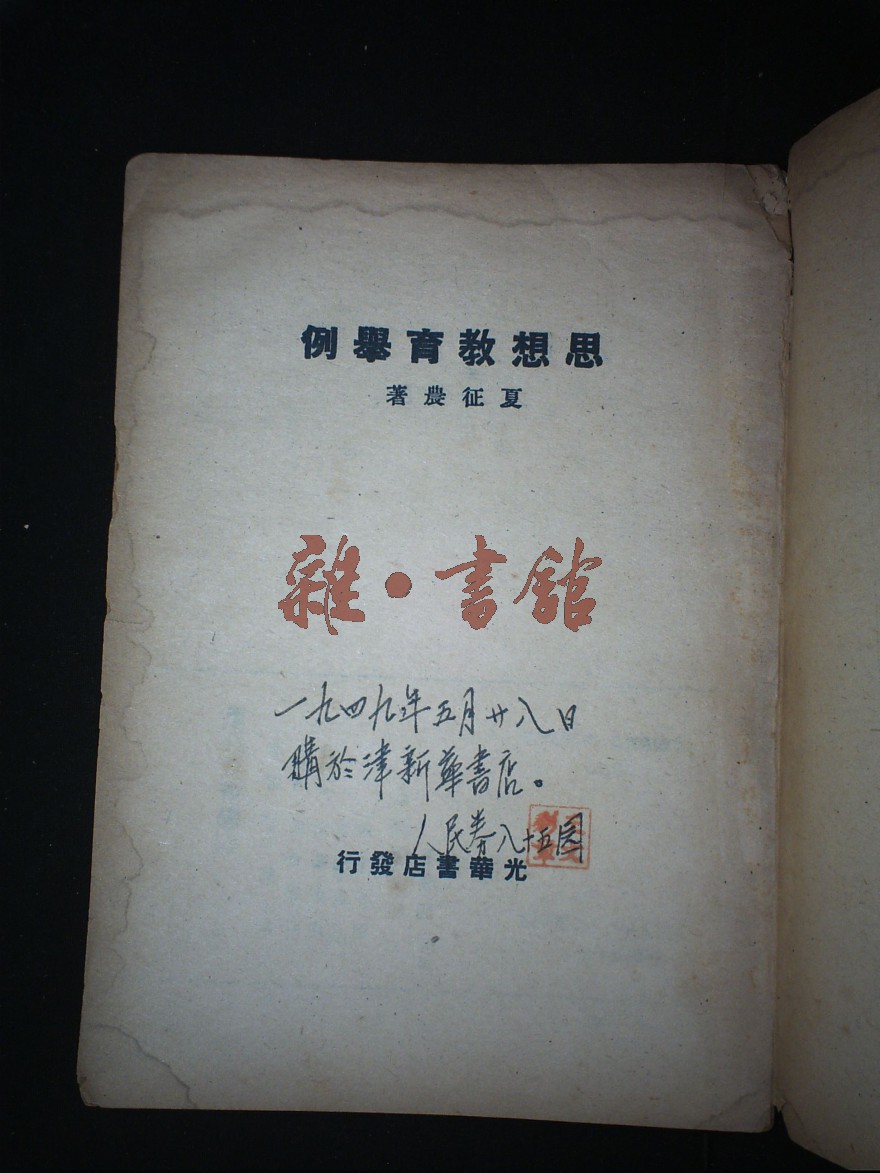 思想教育舉例
夏征農著
雜·書館
一九四九年五月廿八日
購於津新華書店。
人民券八十五圆
光華書店發行